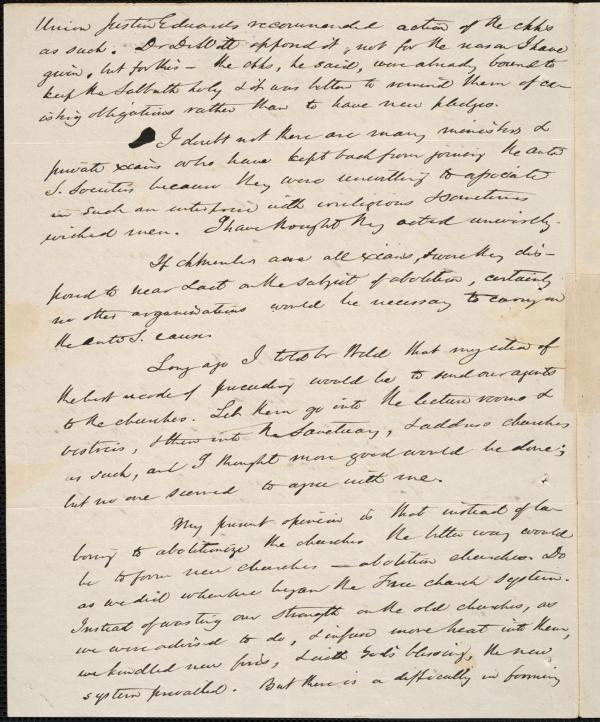 Union Justin Edwards recommended action of the chhs
as such. Dr DeWitt opposed it, not for the reason I have
given, but for this – the chhs, he said, were already bound to
keep the Sabbath holy & it was better to remind them of ex-
isting obligations rather than to have new pledges.
I doubt not there are many ministers &
private xians who have kept back from joining the anti
S. Societies because they were unwilling to associate
in such an enterprise with irreligious & sometimes
wicked men. I have thought they acted unwisely.
If chmembers were all xians, & were they dis-
posed to hear & act on the subject of abolition, certainly
no other organizations would be necessary to carry on
the anti S. cause.
Long ago I told br Weld that my idea of
the best mode of proceeding would be to send our agents
to the churches. Let them go into the lecture rooms &
vestries, & then into the Sanctuary, & address churches
as such, and I thought more good would be done;
but no one seemed to agree with me.
My present opinion is that instead of la-
boring to abolitionize the churches the better way would
be to form new churches – abolition churches. Do
as we did when we began the Free church system.
Instead of wasting our strength on the old churches, as
we were advised to do, & infuse more heat into them,
we kindled new fires, & with God's blessing, the new
system prevailed. But there is a difficulty in forming